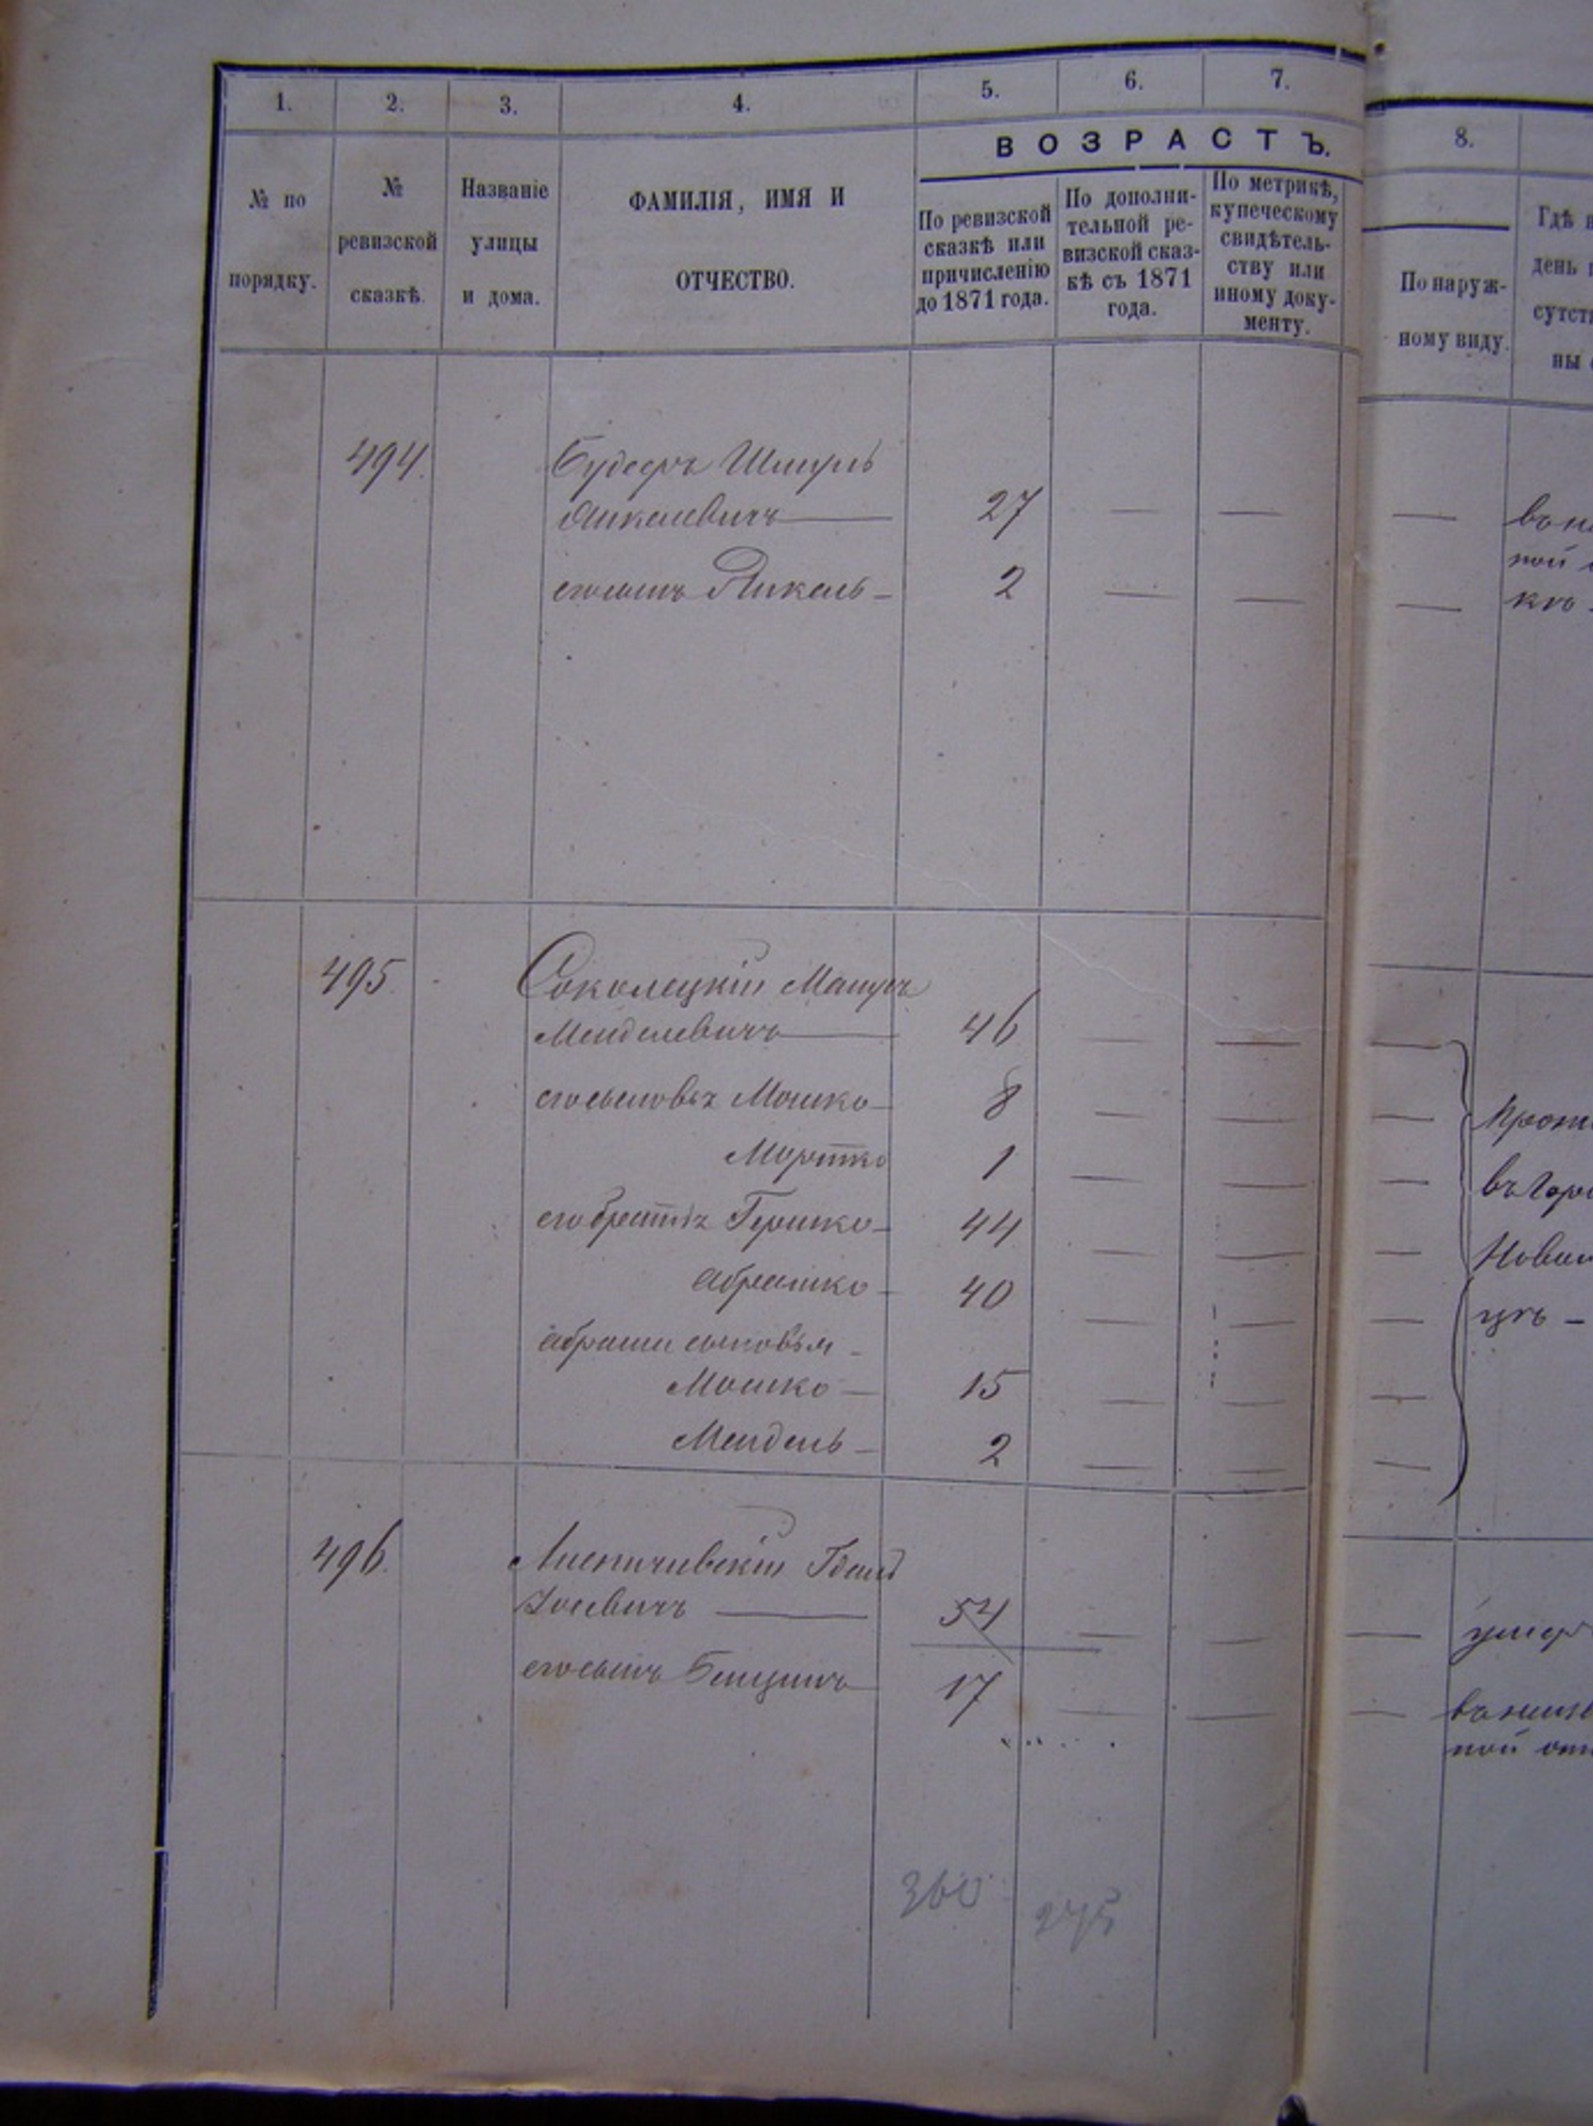 1. 2. 3. 4. 5. 6. 7. 8.
ВОЗРАСТЪ.
№ по
порядку.
№
ревизской
сказкѣ.
Названіе
улицы
и дома.
ФАМИЛІЯ, ИМЯ И
ОТЧЕСТВО.
По ревизской
сказкѣ или
причисленію
до 1871 года.
По дополни-
тельной ре-
визской сказ-
кѣ съ 1871
года.
По метрикѣ,
купеческому
свидѣтель-
ству или
иному доку-
менту.
По наруж-
ному виду.
Гдѣ
день
сутст
ны
494. Шмуль
Янкелевичъ — 27 — — —
ной
егосынъ Янкель — 2 — — —
495. Соколецкій Манусъ
Менделевичъ — 46 — — —
егосыновья Мошко — 8 — — —
Мортко 1 — — —
его братья Гершко — 44 — — —
Абрашко — 40 — — —
Абраши сыновья —
Мошко — 15 — — —
Мендель — 2 — — —
496. Лисничевскій
54 — — —
егосынъ Бенцинъ 17 — — —
ной
360 275